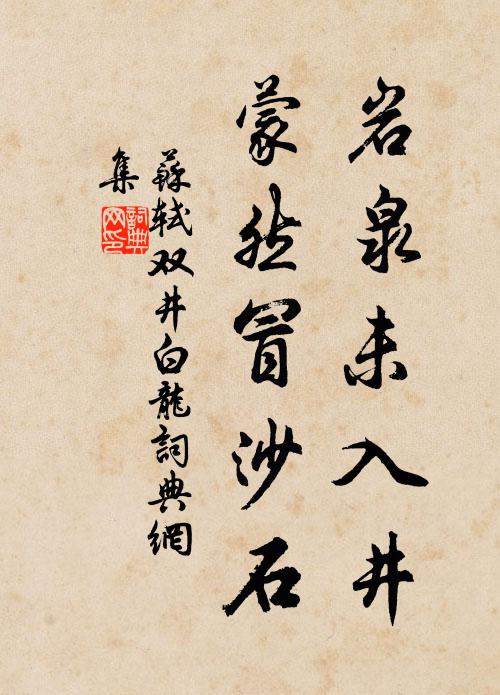 岩泉未入井
蒙然冒沙石
蘇軾双井白龍詞典網
集
詞典网印